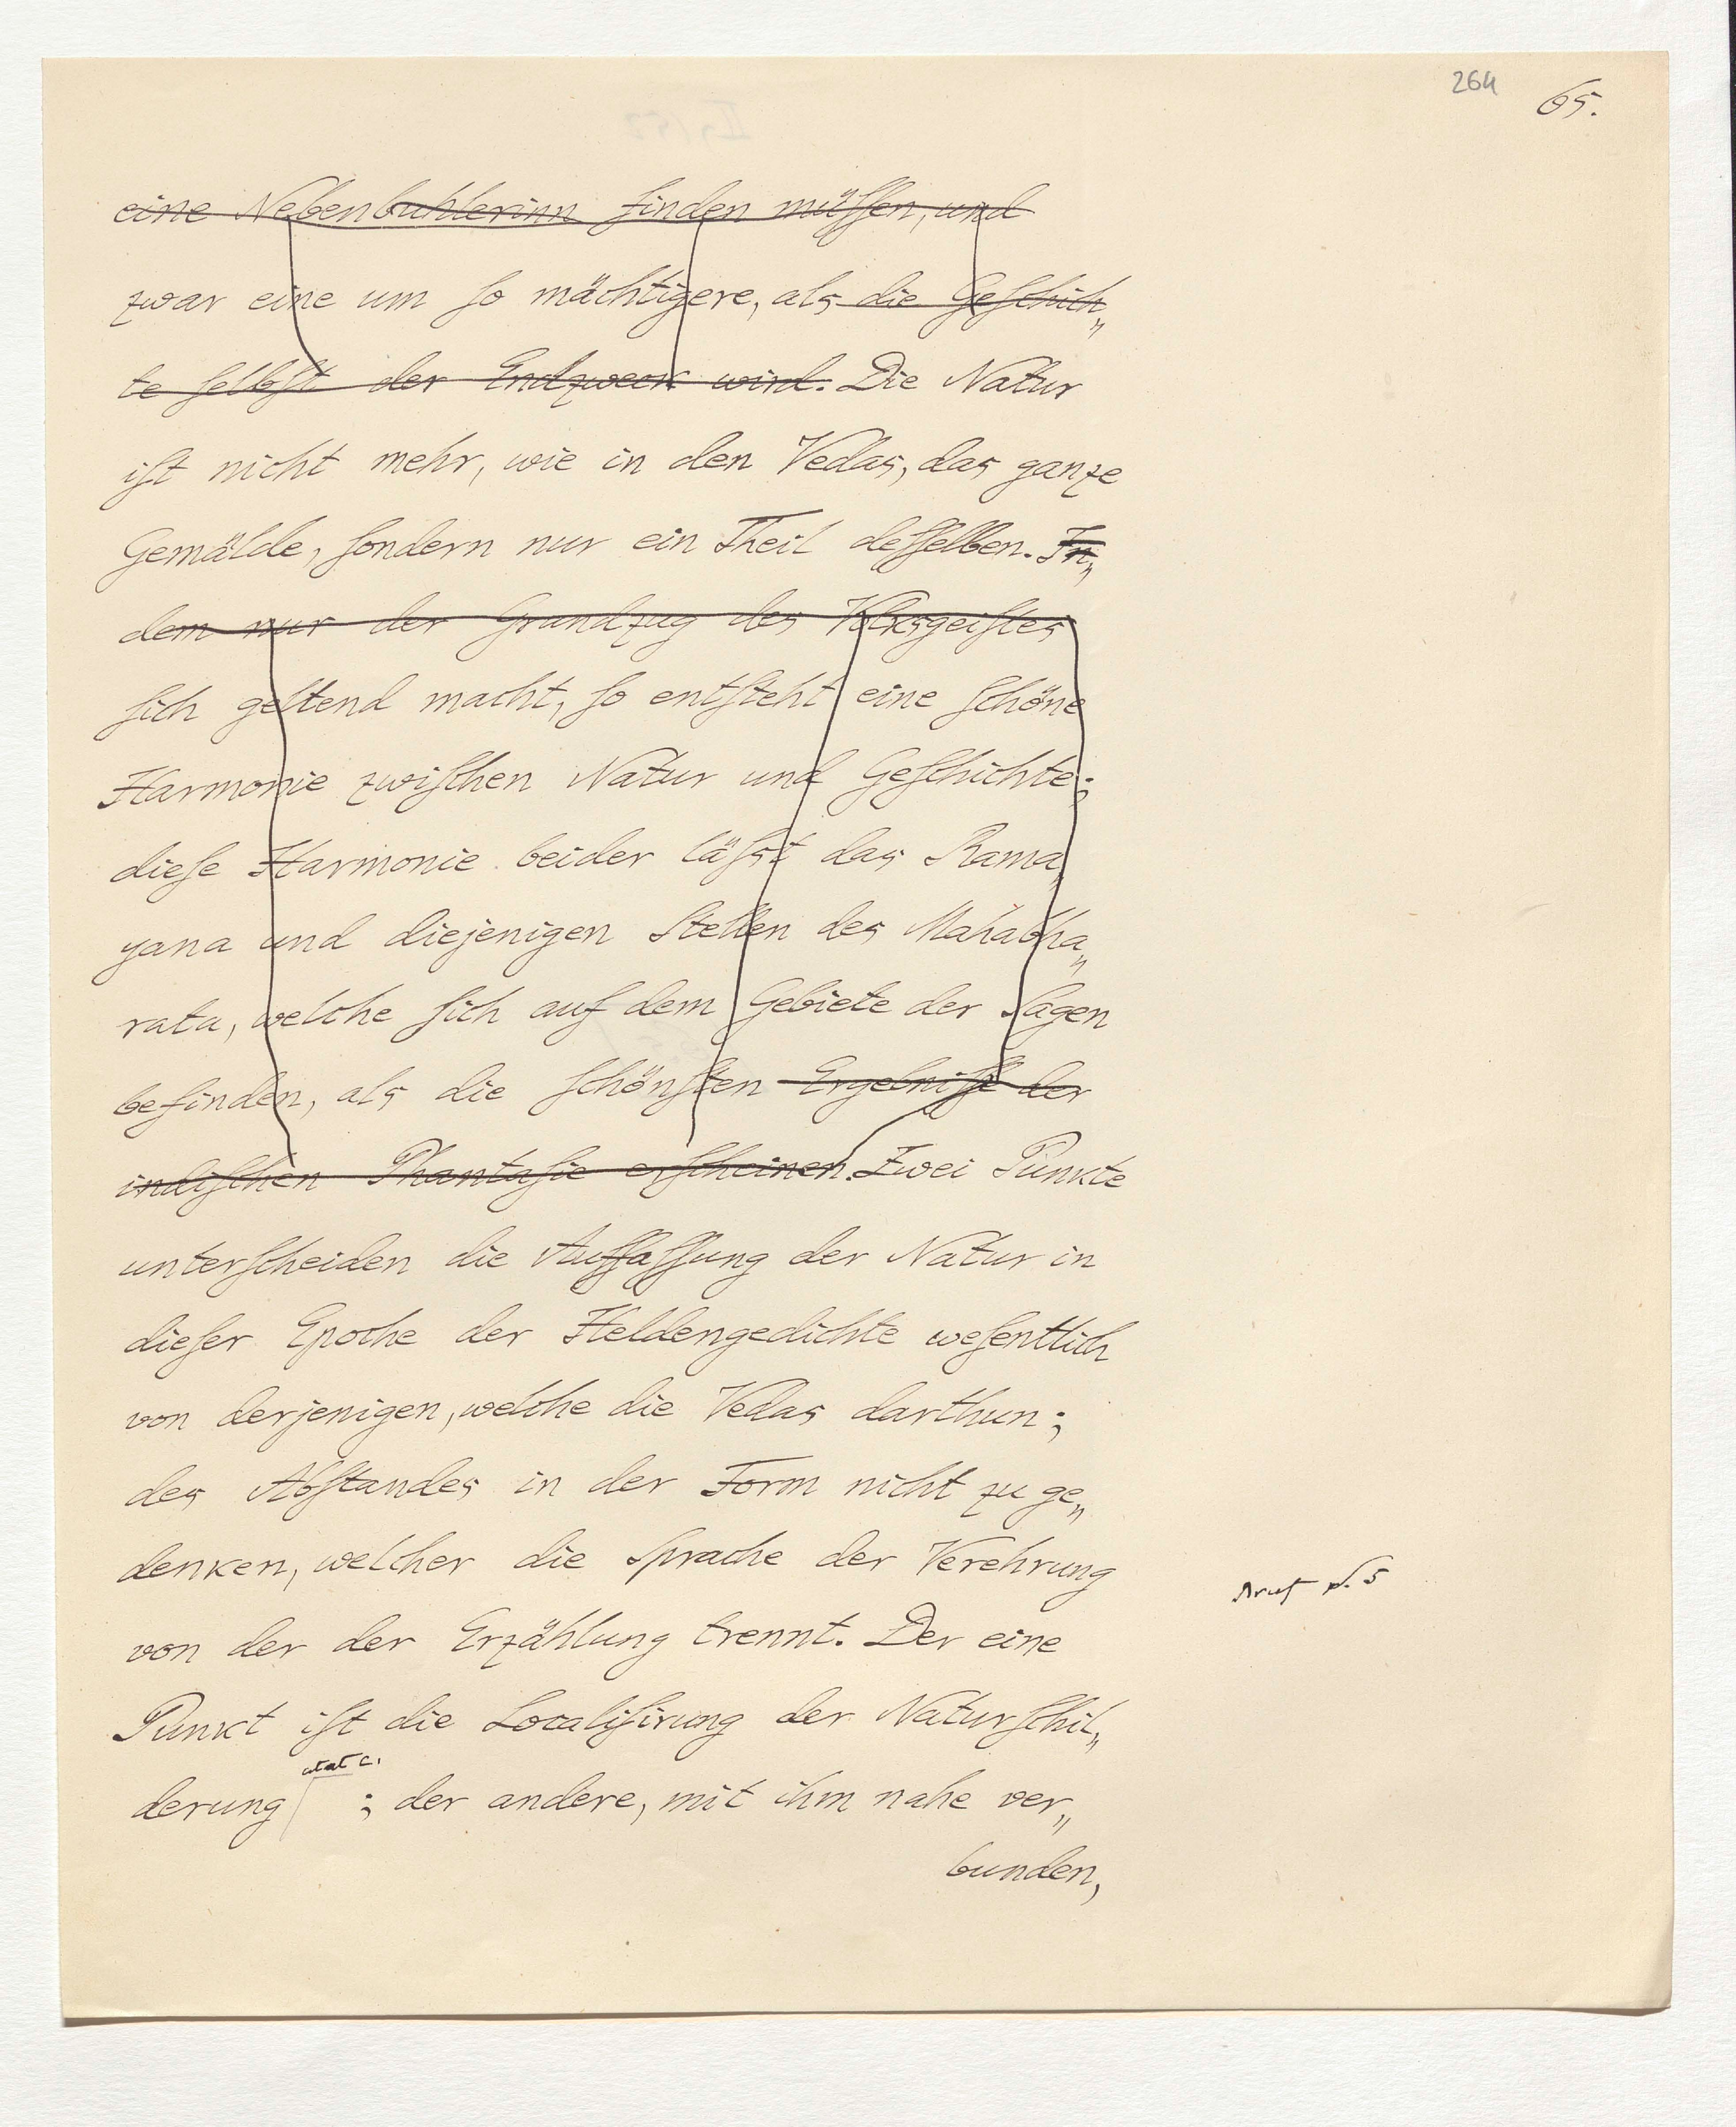 264 65.
eine Nebenbuhlerinn finden müſſen, und
zwar eine um ſo mächtigere, als die Geſchich„
te ſelbſt der Endzweck wird. Die Natur
iſt nicht mehr, wie in den Vedas, das ganze
Gemälde, ſondern nur ein Theil deſſelben. In„
dem nur der Grundzug des Volksgeiſtes
ſich geltend macht, ſo entſteht eine ſchöne
Harmonie zwiſchen Natur und Geſchichte;
dieſe Harmonie beider läſst das Rama„
yana und diejenigen Stellen des Mahabha„
rata, welche ſich auf dem Gebiete der Sagen
befinden, als die ſchönſten Ergebniſſe der
indiſchen Phantaſie erſcheinen. Zwei Punkte
unterſcheiden die Auffaſſung der Natur in
dieſer Epoche der Heldengedichte weſentlich
von derjenigen, welche die Vedas darthun;
des Abſtandes in der Form nicht zu ge„
denken, welcher die Sprache der Verehrung
von der der Erzählung trennt. Der eine
Punkt iſt die Localiſirung der Naturſchil„
derung ; der andere, mit ihm nahe ver„
bunden,